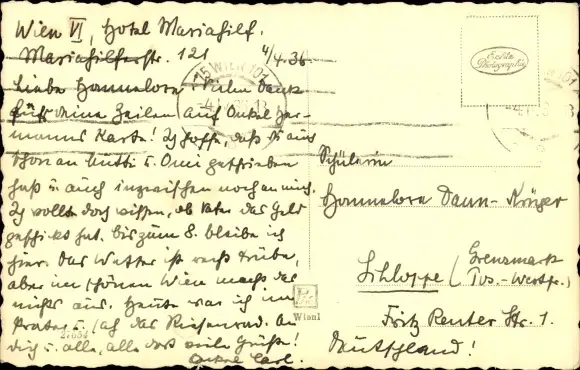 Wien VI, Hotel Mariahilf.
Mariahilferstr. 121 4/4.36
Liebe Hannelore! Vielen Dank
für deine Zeilen auf Onkel Her-
manns Karte! Ich hoffe, daß Du auch
schon an Mutti u. Omi geschrieben
hast u. auch inzwischen noch an mich.
Ich wollte doch wissen, ob Vater das Geld
geschickt hat. Bis zum 8. bleibe ich
hier. Das Wetter ist recht trübe,
aber im schönen Wien macht das
nichts aus. Heute war ich im
Prater u. sah das Riesenrad. An
dich u. alle, alle dort viele Grüße!
Onkel Carl.
75 WIEN 101
Echte
Photographie
Schülerin
Hannelore Daun-Krüger
Schloppe (Grenzmark
Pos.-Westpr.)
Fritz Reuter Str. 1.
Deutschland!
PK
Wien I